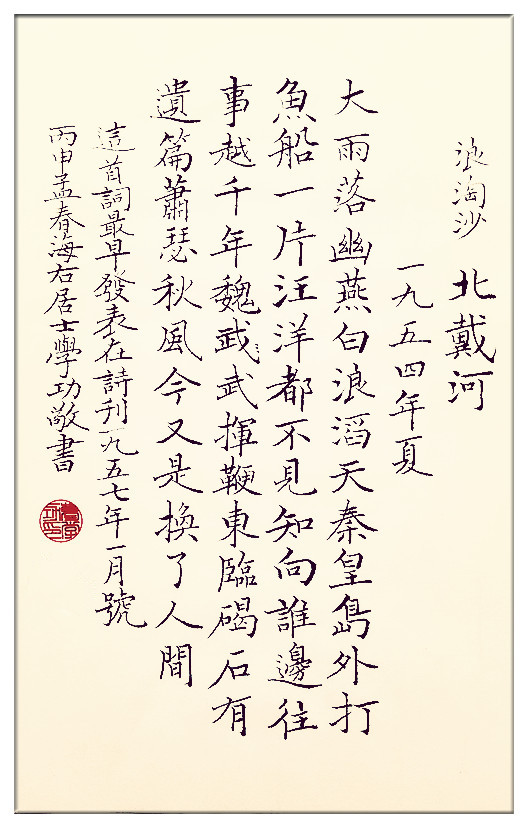 浪淘沙 北戴河
一九五四年夏
大雨落幽燕白浪滔天秦皇島外打
魚船一片汪洋都不見知向誰邊往
事越千年魏武武揮鞭東臨碣石有
遺篇蕭瑟秋風今又是換了人間
這首詞最早發表在詩刊一九五七年一月號
丙申孟春海右居士學功敬書